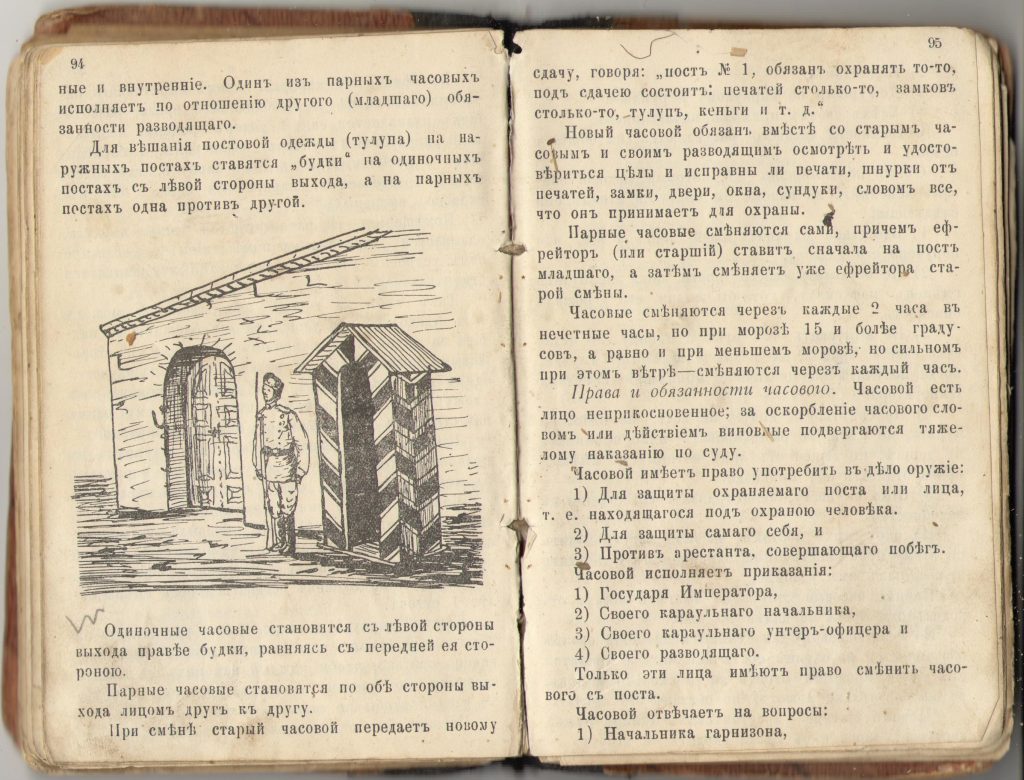 94
ные и внутренніе. Одинъ изъ парныхъ часовыхъ
исполняетъ по отношенію другого (младшаго) обя-
занности разводящаго.
Для вѣшанія постовой одежды (тулупа) на на-
ружныхъ постахъ ставятся „будки“ на одиночныхъ
постахъ съ лѣвой стороны выхода, а на парныхъ
постахъ одна противъ другой.
Одиночные часовые становятся съ лѣвой стороны
выхода правѣе будки, равняясь съ передней ея сто-
роною.
Парные часовые становятся по обѣ стороны вы-
хода лицомъ другъ къ другу.
При смѣнѣ старый часовой передаетъ новому
95
сдачу, говоря: „постъ № 1, обязанъ охранять то-то,
подъ сдачею состоитъ: печатей столько-то, замковъ
столько-то, тулупъ, кеньги и т. д.“
Новый часовой обязанъ вмѣстѣ со старымъ ча-
совымъ и своимъ разводящимъ осмотрѣть и удосто-
вѣриться цѣлы и исправны ли печати, шнурки отъ
печатей, замки, двери, окна, сундуки, словомъ все,
что онъ принимаетъ для охраны.
Парные часовые смѣняются сами, причемъ еф-
рейторъ (или старшій) ставитъ сначала на постъ
младшаго, а затѣмъ смѣняетъ уже ефрейтора ста-
рой смѣны.
Часовые смѣняются черезъ каждые 2 часа въ
нечетные часы, но при морозѣ 15 и болѣе граду-
совъ, а равно и при меньшемъ морозѣ, но сильномъ
при этомъ вѣтрѣ—смѣняются черезъ каждый часъ.
Права и обязанности часового. Часовой есть
лицо неприкосновенное; за оскорбленіе часового сло-
вомъ или дѣйствіемъ виновные подвергаются тяже-
лому наказанію по суду.
Часовой имѣетъ право употребить въ дѣло оружіе:
1) Для защиты охраняемаго поста или лица,
т. е. находящагося подъ охраною человѣка.
2) Для защиты самаго себя, и
3) Противъ арестанта, совершающаго побѣгъ.
Часовой исполняетъ приказанія:
1) Государя Императора,
2) Своего караульнаго начальника,
3) Своего караульнаго унтеръ-офицера и
4) Своего разводящаго.
Только эти лица имѣютъ право смѣнить часо-
вого съ поста.
Часовой отвѣчаетъ на вопросы:
1) Начальника гарнизона,